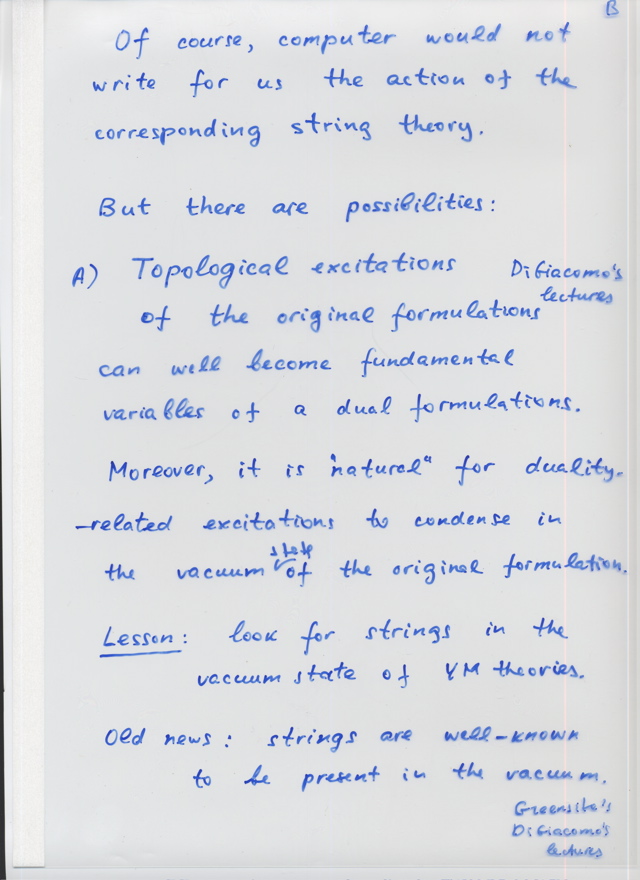 B
Of course, computer would not
write for us the action of the
corresponding string theory.
But there are possibilities:
A) Topological excitations
DiGiacomo's
lectures
of the original formulations
can well become fundamental
variables of a dual formulations.
Moreover, it is "natural" for duality-
-related excitations to condense in
state
the vacuum of the original formulation.
Lesson: look for strings in the
vacuum state of YM theories.
Old news: strings are well-known
to be present in the vacuum.
Greensite's
DiGiacomo's
lectures